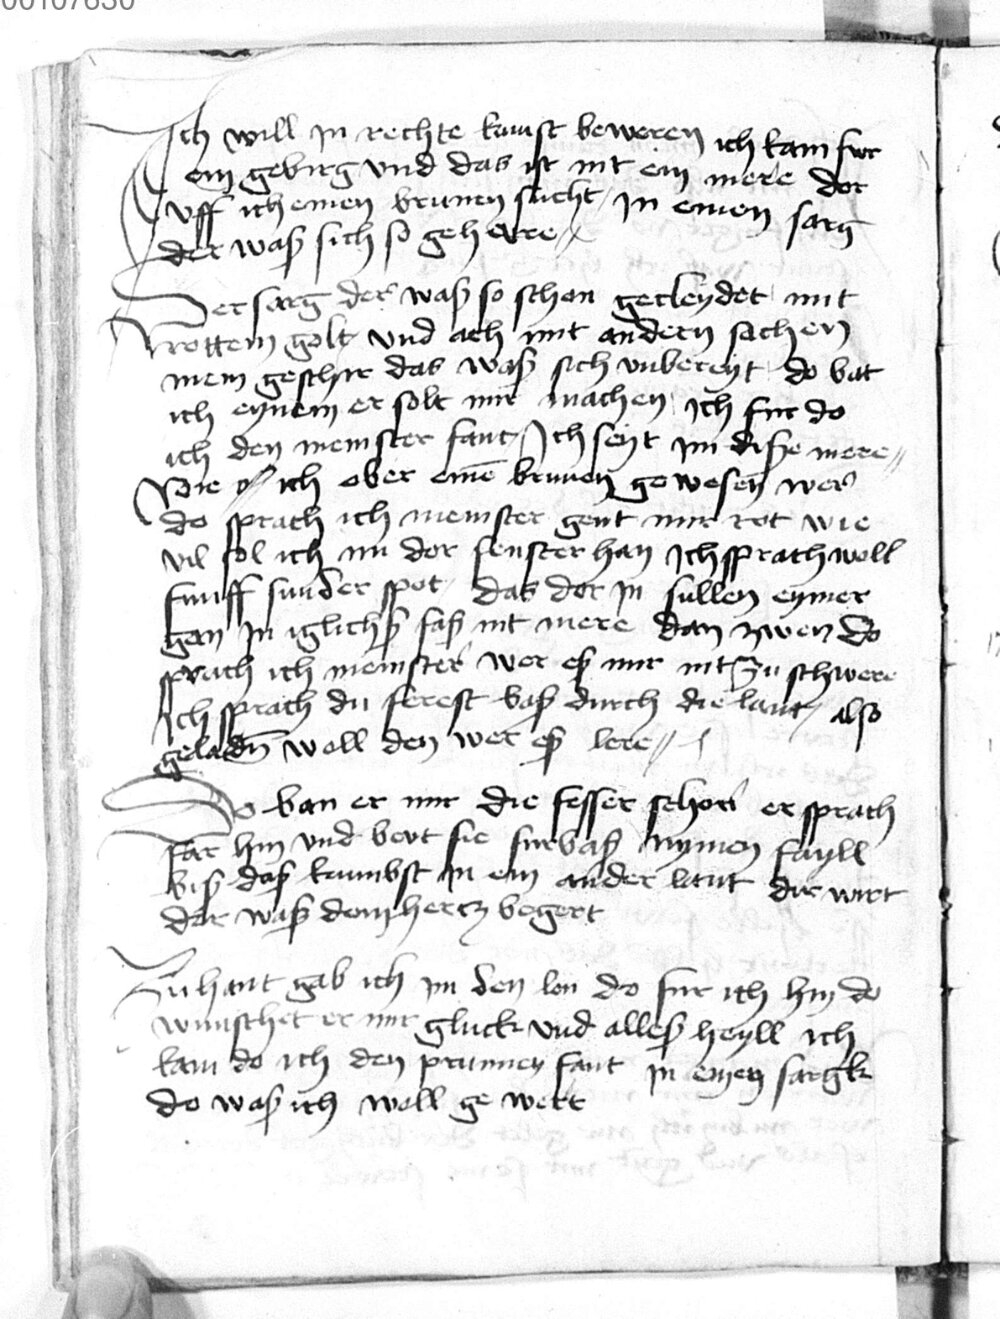 00107630
Ich will in rechte kunst beweren ich kam fur
ein gebirg vnd das ist nit ein mere dor
vff ich einen brunen sucht in einen sarg
der waß sich so geheure
Der sarg der waß so schon gecleydet mit
rottem golt vnd ach mit andern sachen
mein geschir das waß sich vnbereyt do bat
ich eynem er solt mir machen ich fur do
ich den meinster fant Ich seyt im diße mere
Wie ich ober eine brunen gewesen wer
do sprach ich meinster gent mir rot wie
vil sol ich im der fenster han Ich sprach woll
funff sunder spot das dor in sullen eymer
gen in iglichß faß nit mere dan zwen do
sprach ich meinster wer eß mir nit zu schwere
Ich sprach du ferest baß durch die lant also
geladn woll den wer eß lere
Do ban er mir die fesser schon er sprach
far hin vnd beut sie furbaß nymen fayll
biß daß kumbst in ein ander lant dir wirt
dar waß dein hertz begert
Zu hant gab ich im den lon do fur ich hin do
wunschet er mir gluck vnd alleß heyll ich
kam do ich den prunnen fant in einen sargk
do waß ich woll gewert